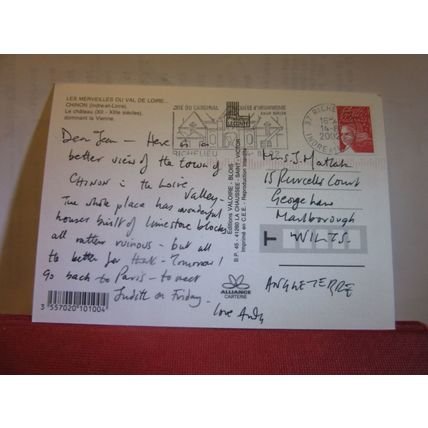 LES MERVEILLES DU VAL DE LOIRE...
CHINON (Indre-et-Loire).
Le château (XII - XVe siècles),
dominant la Vienne.
Dear Jean - Here
better view of the town of
CHINON in the Loire
Valley -
The whole place has wonderful
houses built of limestone blocks
all rather ruinous - but all
to better for that - Tomorrow I
Go back to Paris - to meet
Judith on Friday -
Love Andy
3 557020 101004
Editions VALOIRE - BLOIS
B.P. 45 - 41260 LA CHAUSSÉE - SAINT - VICTOR
Imprimé en C.E.E. - Reproduction interdite
ALLIANCE
CARTERIE
CITE DU CARDINAL
RICHELIEU
37 RICHELIEU
14-8
2002
INDRE ET
Mrs. J. Matlah
15 Purcells Court
George Lane
Marlborough
T WILTS.
ANGLETERRE